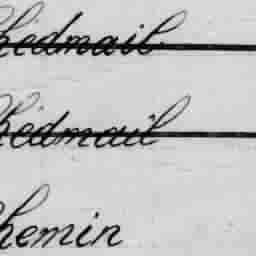 hedmail
hedmail
hemin